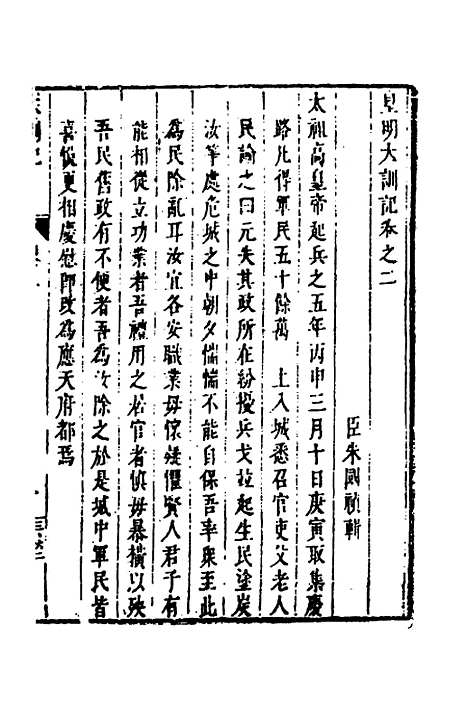 皇明大訓記卷之二
臣朱國禎輯
太祖高皇帝起兵之五年丙申三月十日庚寅取集慶
路凡得軍民五十餘萬　上入城悉召官吏父老人
民諭之曰元失其政所在紛擾兵戈並起生民塗炭
汝等處危城之中朝夕惴惴不能自保吾率眾至此
為民除亂耳汝宜各安職業毋懷疑懼賢人君子有
能相從立功業者吾禮用之居官者慎毋暴橫以殃
吾民舊政有不便者吾為汝除之於是城中軍民皆
喜悅更相慶慰即改為應天府都焉